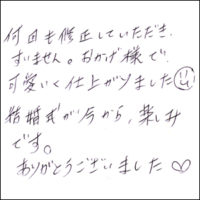 何回も修正していただき、
すいません。おかげ様で
可愛いく仕上がりました
結婚式が今から、楽しみ
です。
ありがとうございました♡